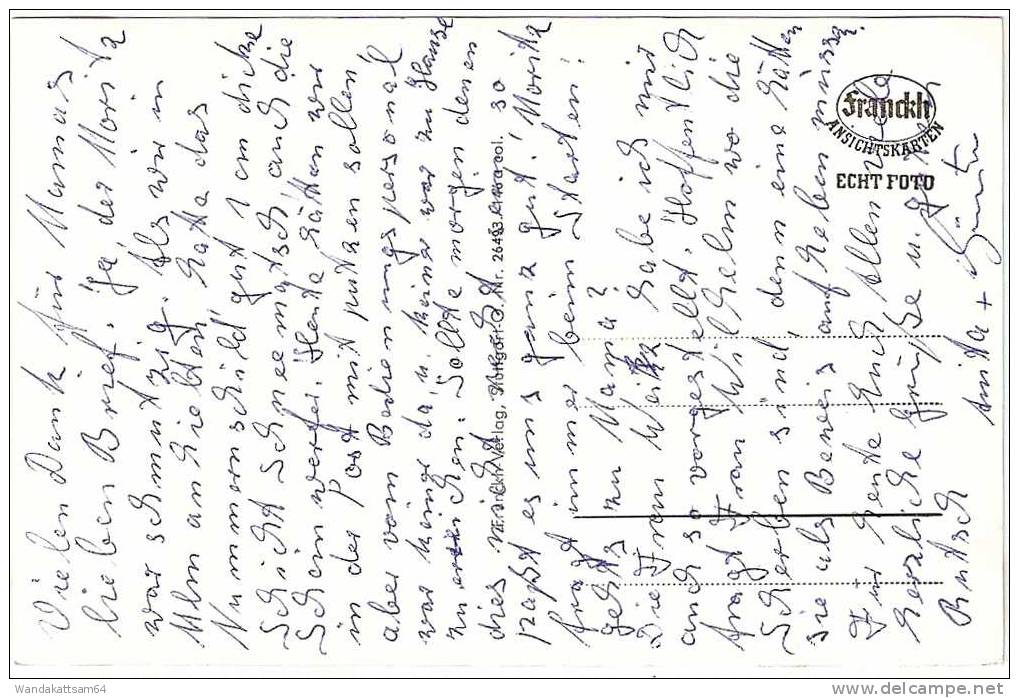 Vielen Dank für Mamas
lieben Brief. Ja, der Moritz
war schmutzig. Als wir in
Ulm anhielten, hatte das
Nummernschild gut 1 cm dicke
Schicht Schneematsch auch die
Scheinwerfer. Heute hätten wir
in der Post mit putzen sollen
aber vom Bedienungspersonal
war keiner da, u. keiner war zu Hause
zu erreichen. Sollte morgen denen
dies nicht
paßt es uns ganz gut! Moritz
fragt immer beim Starten:
gehts zu Mama?
Die Frau Weitz habe ich mir
auch so vorgestellt. Hoffentlich
fragt Frau Wilhelm wo die
Scherben sind, denn eine hätten
sie als Beweis aufheben müssen.
Für heute Euch Allen viele
herzliche Grüße u. guten
Rutsch
Anita + Günter
Franckh
ANSICHTSKARTEN
ECHT FOTO
Franckh-Verlag, Stuttgart-O. Nr. 26493
Wandakattsam64
delcampe.net